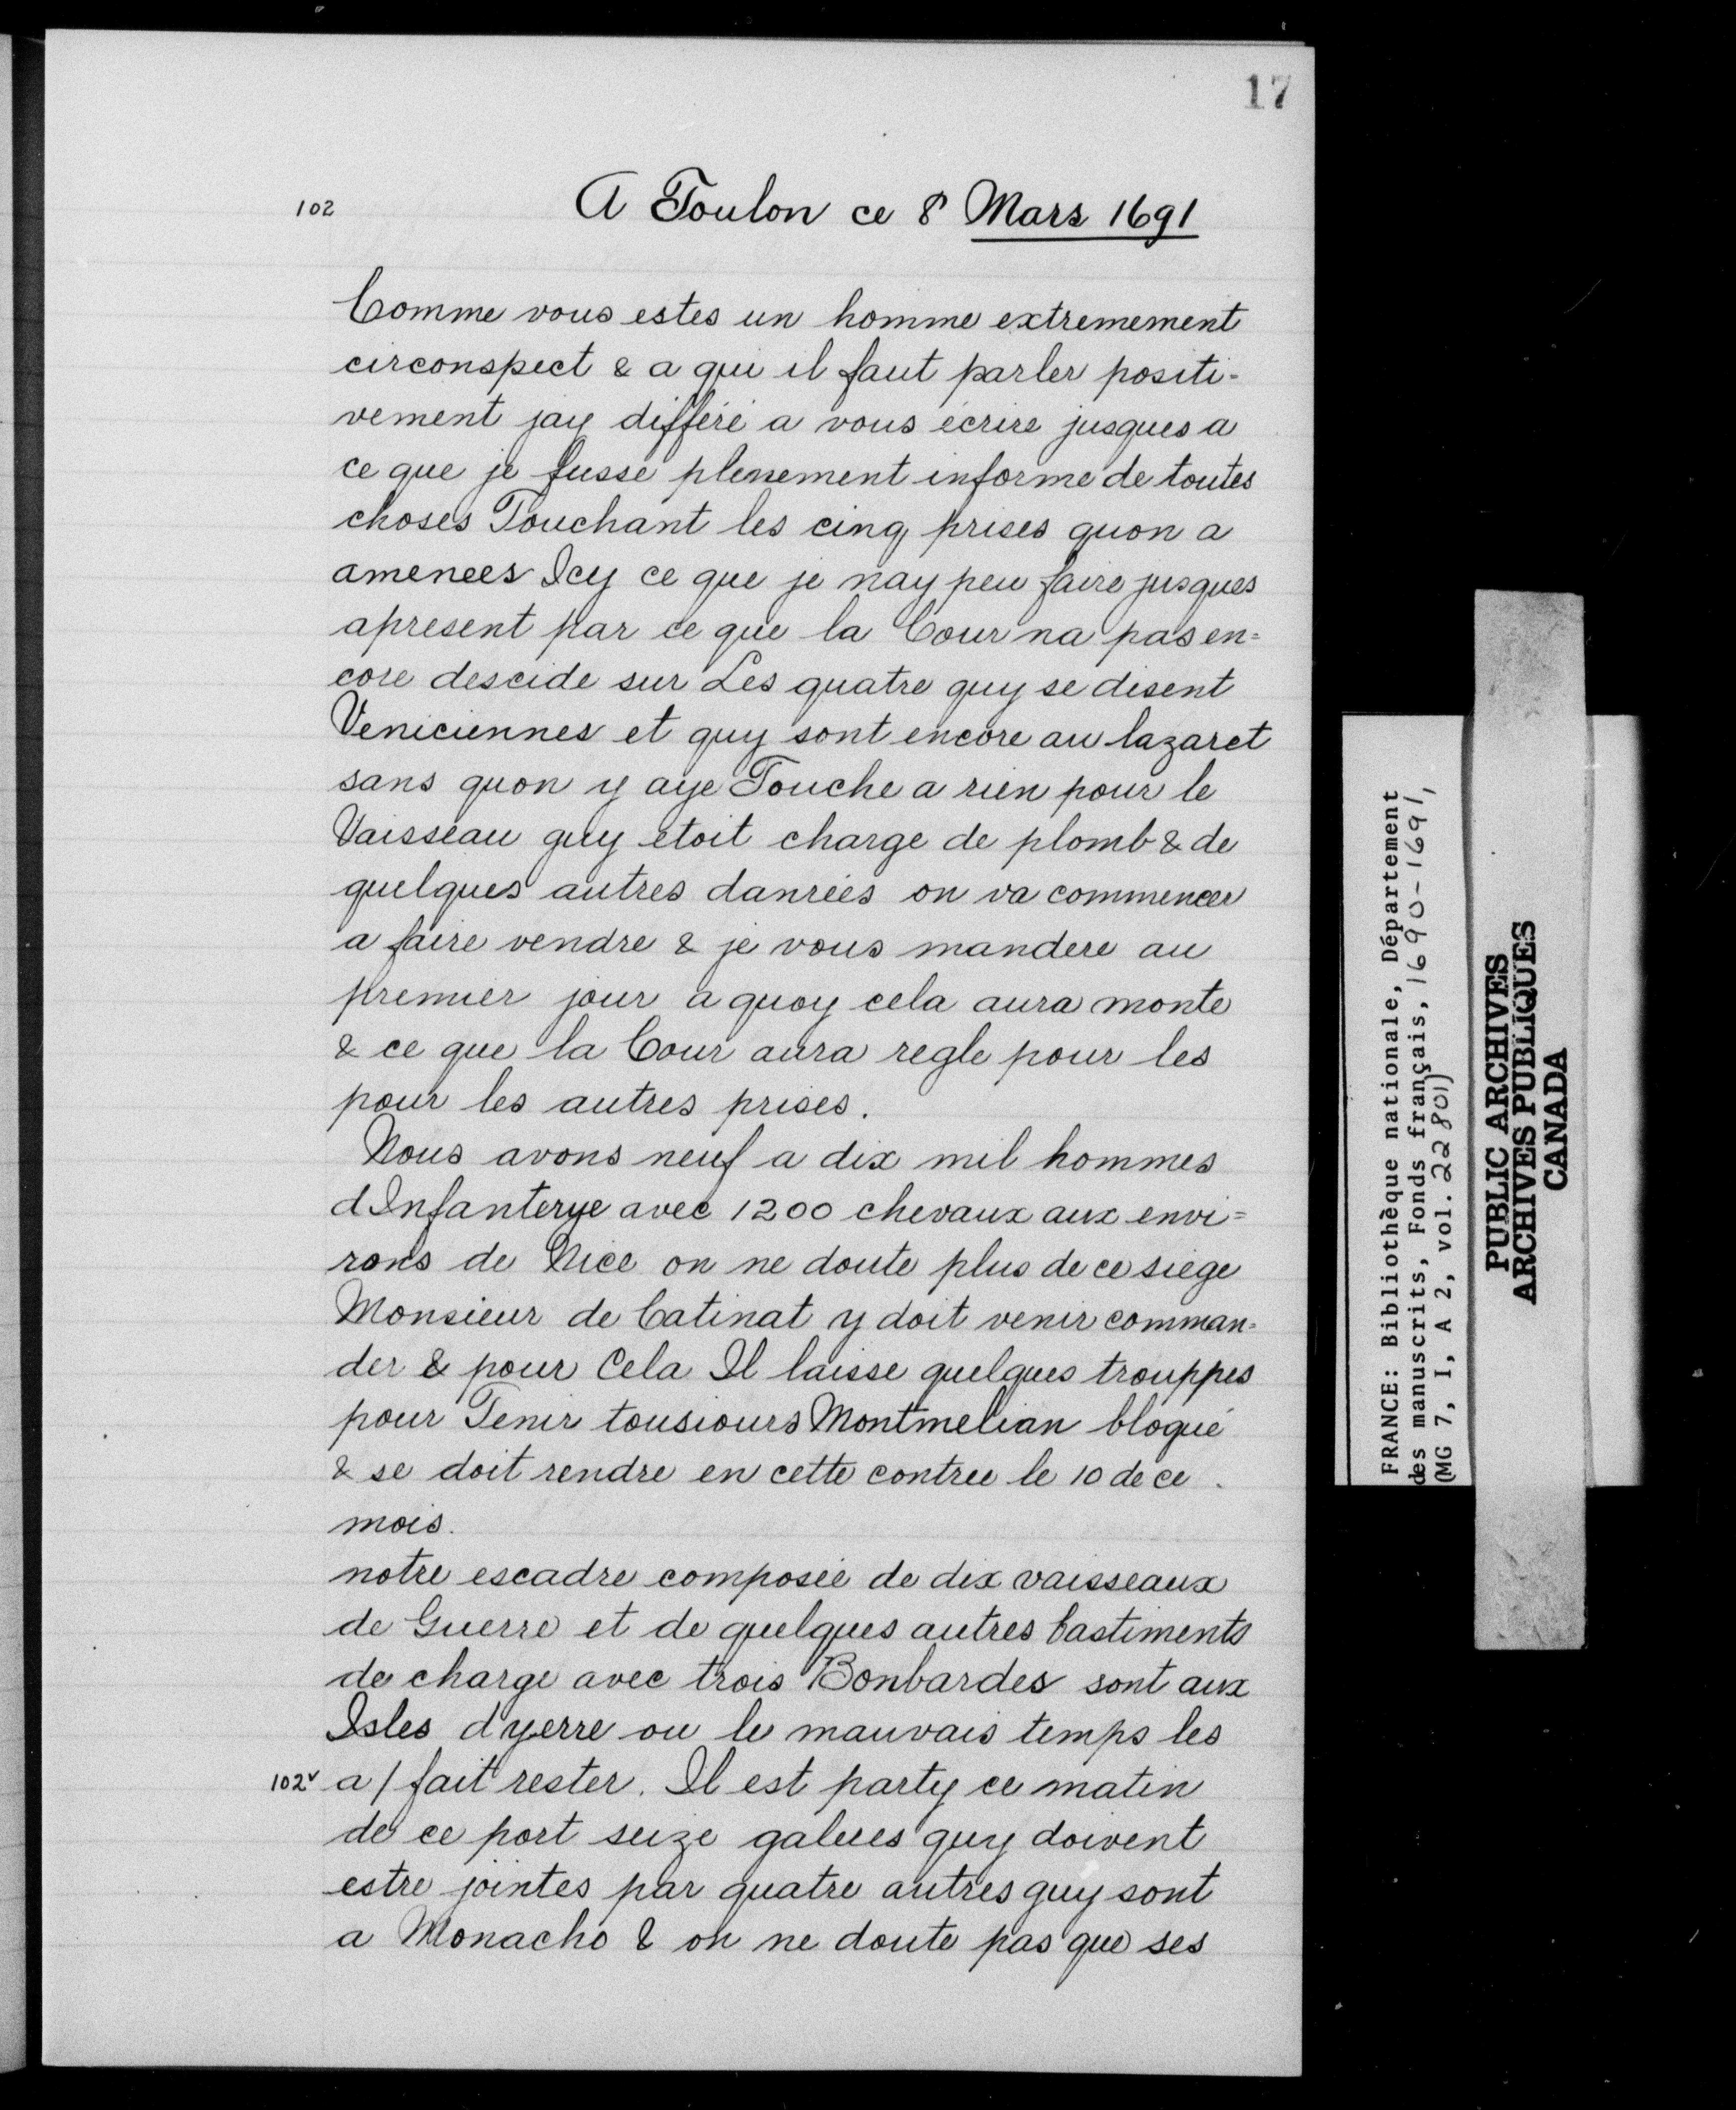 17
102
A Toulon ce 8 Mars 1691
Comme vous estes un homme extremement
circonspect & a qui il faut parler positi-
vement jay différé a vous écrire jusques a
ce que je fusse plenement informe de toutes
choses Touchant les cinq prises quon a
amenees Icy ce que je nay peu faire jusques
apresent par ce que la Cour na pas en=
core descide sur Les quatre quy se disent
Veniciennes et quy sont encore au lazaret
sans quon y aye Touche a rien pour le
Vaisseau quy etoit charge de plomb & de
quelques autres danrées on va commencer
a faire vendre & je vous mandere au
premier jour a quoy cela aura monte
& ce que la Cour aura regle pour les
pour les autres prises.
Nous avons neuf a dix mil hommes
dInfanterye avec 1200 chevaux aux envi=
rons de Nice on ne doute plus de ce siege
Monsieur de Catinat y doit venir comman=
der & pour Cela Il laisse quelques trouppes
pour Tenir tousiours Montmelian bloqué
& se doit rendre en cette contree le 10 de ce
mois.
notre escadre composée de dix vaisseaux
de Guerre et de quelques autres bastiments
de charge avec trois Bonbardes sont aux
Isles dyerre ou le mauvais temps les
102v a / fait rester. Il est party ce matin
de ce port seize galeres quy doivent
estre jointes par quatre autres quy sont
a Monacho & on ne doute pas que ses
FRANCE: Bibliothèque nationale, Département
des manuscrits, Fonds français, 1690-1691,
(MG 7, I, A 2, vol. 22801)
PUBLIC ARCHIVES
ARCHIVES PUBLIQUES
CANADA